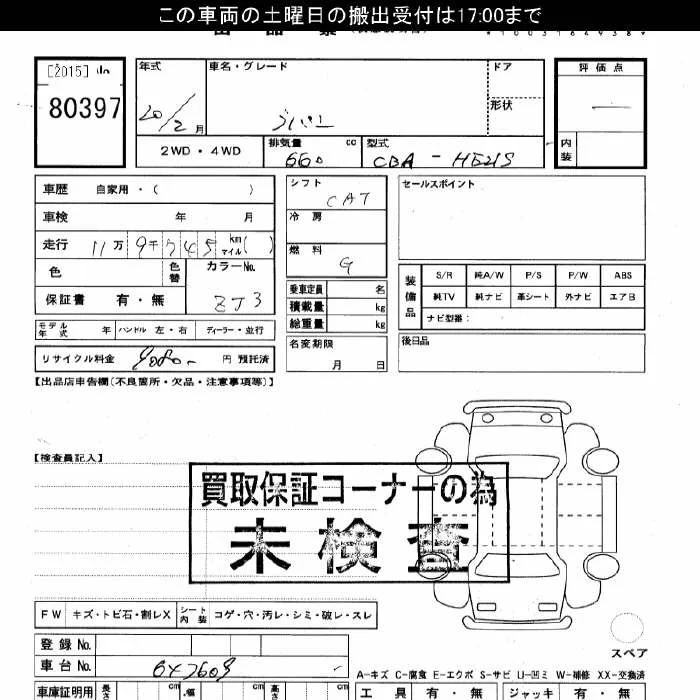 この車両の土曜日の搬出受付は17:00まで
[2015]
80397
年式
20/2月
車名・グレード
ラパン
ドア
形状
評価点
内装
2WD・4WD
排気量 660 cc
型式 CBA-HE21S
車歴 自家用・( )
車検 年 月
走行 11万9千745km マイル( )
色
色替
カラーNo. ZJ3
保証書 有・無
モデル年式 年 ハンドル 左・右 ディーラー・並行
リサイクル料金 円 預託済
シフト CAT
冷房
燃料 G
乗車定員 名
積載量 kg
総重量 kg
名変期限
月 日
セールスポイント
装備品
S/R 純A/W P/S P/W ABS
純TV 純ナビ 革シート 外ナビ エアB
ナビ型番:
後日品
【出品店申告欄(不良箇所・欠品・注意事項等)】
【検査員記入】
買取保証コーナーの為
未検査
FW キズ・トビ石・割レX シート内装 コゲ・穴・汚レ・シミ・破レ・スレ
スペア
登録No.
車台No.
A-キズ C-腐食 E-エクボ S-サビ U-凹ミ W-補修 XX-交換済
車庫証明用 長さ cm 幅 cm 高さ cm
工具 有・無 ジャッキ 有・無